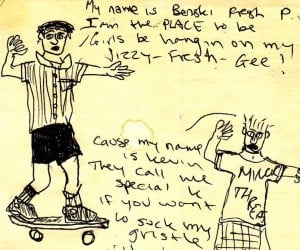 My name is Benski Fresh P.
I am the PLACE to be
Girls be hangin on my
Jizzy-Fresh-Gee!
Cause my name
is Kevin
They call me
special K
if you want
to suck my
THREE